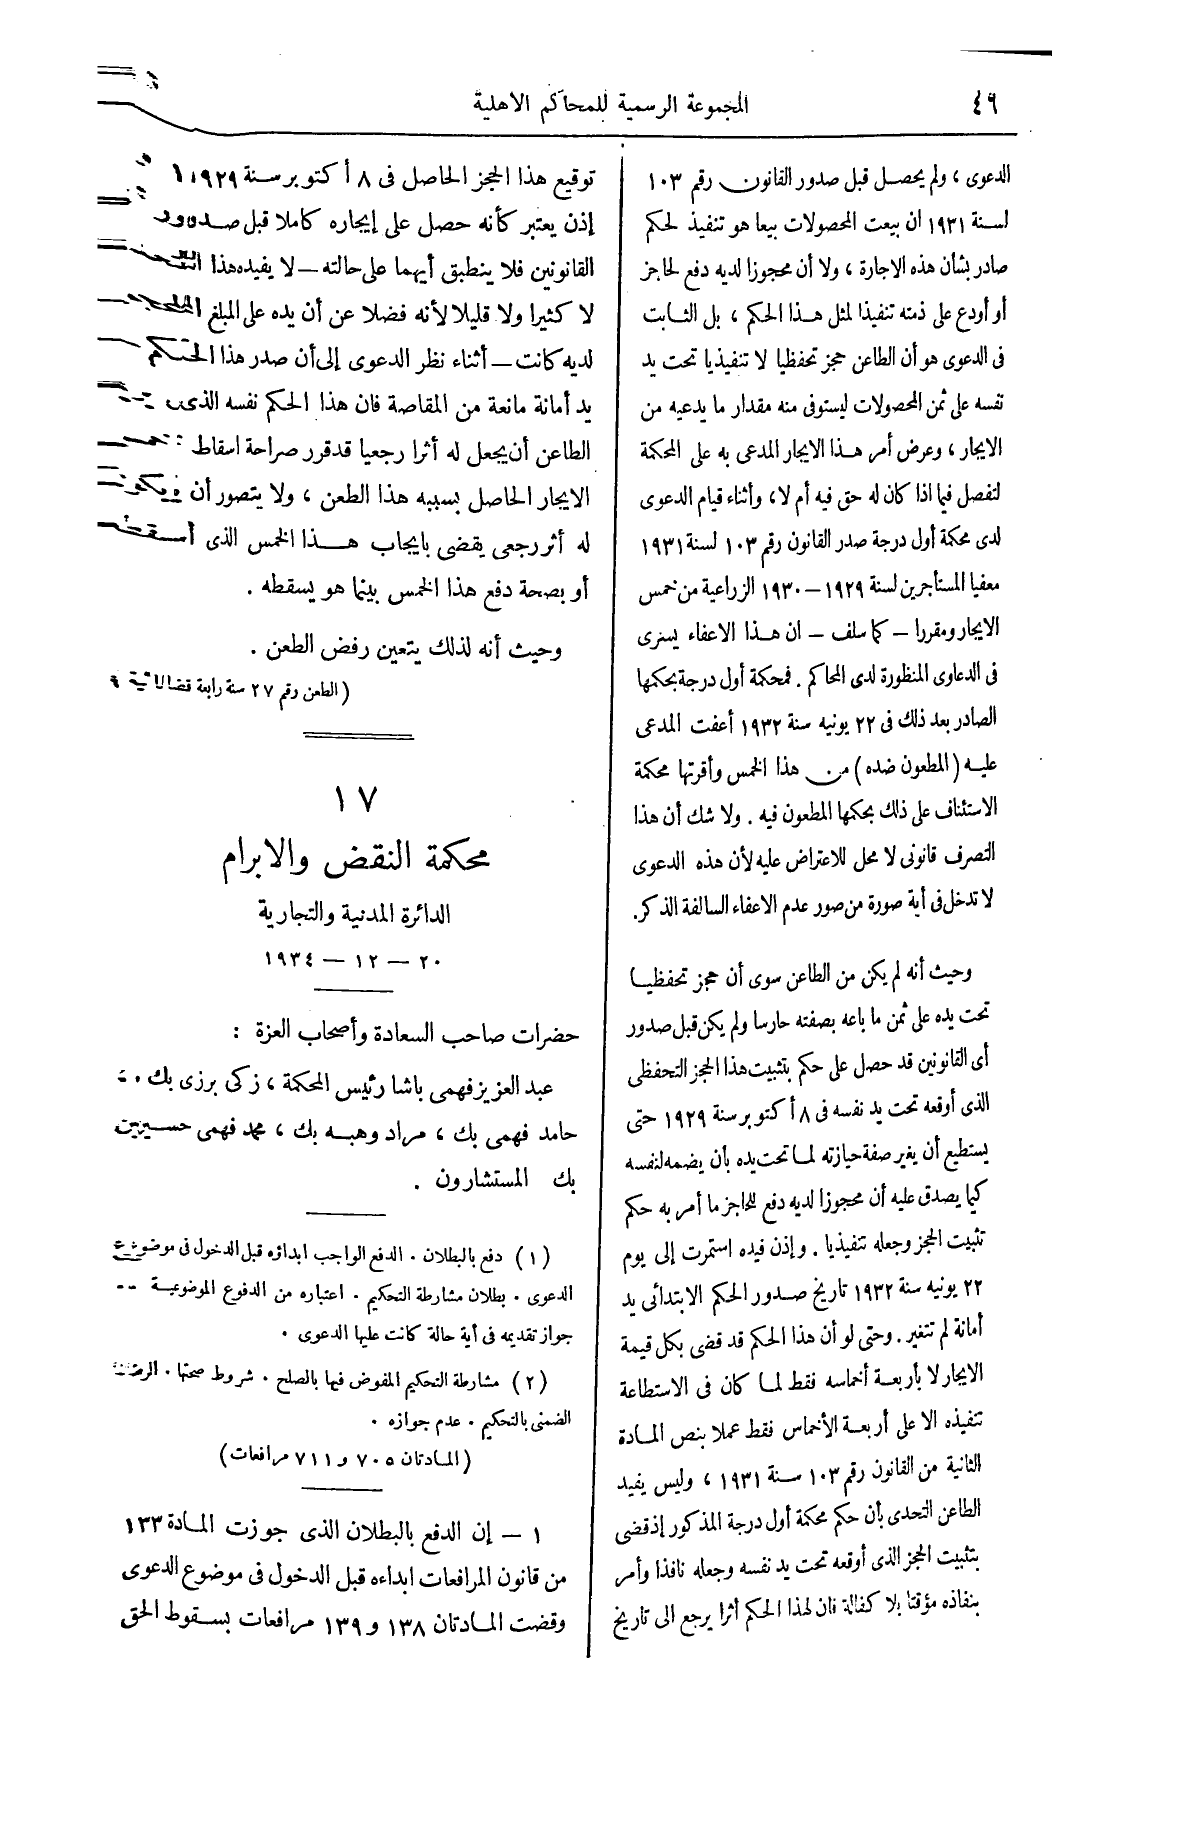 ٤٦
المجموعة الرسمية للمحاكم الاهلية
الدعوى، ولم يحصل قبل صدور القانون رقم ١٠٣
لسنة ١٩٣١ أن بيعت المحصولات بيعا هو تنفيذ لحكم
صادر بشأن هذه الاجارة، ولا أن محجوزا لديه دفع لحاجز
أو أودع على ذمته تنفيذا لمثل هذا الحكم، بل الثابت
فى الدعوى هو أن الطاعن حجز تحفظيا لا تنفيذيا تحت يد
نفسه على ثمن المحصولات ليستوفى منه مقدار ما يدعيه من
الايجار، وعرض أمر هذا الايجار المدعى به على المحكمة
لتفصل فيما اذا كان له حق فيه أم لا، وأثناء قيام الدعوى
لدى محكمة أول درجة صدر القانون رقم ١٠٣ لسنة ١٩٣١
معفيا المستأجرين لسنة ١٩٢٩ – ١٩٣٠ الزراعية من خمس
الايجار ومقررا – كما سلف – ان هذا الاعفاء يسرى
فى الدعاوى المنظورة لدى المحاكم. فمحكمة أول درجة بحكمها
الصادر بعد ذلك فى ٢٢ يونيه سنة ١٩٣٢ أعفت المدعى
عليه (المطعون ضده) من هذا الخمس وأقرتها محكمة
الاستئناف على ذلك بحكمها المطعون فيه. ولا شك أن هذا
التصرف قانونى لا محل للاعتراض عليه لأن هذه الدعوى
لا تدخل فى أية صورة من صور عدم الاعفاء السالفة الذكر.
وحيث أنه لم يكن من الطاعن سوى أن حجز تحفظيا
تحت يده على ثمن ما باعه بصفته حارسا ولم يكن قبل صدور
أى القانونين قد حصل على حكم بتثبيت هذا الحجز التحفظى
الذى أوقعه تحت يد نفسه فى ٨ أكتوبر سنة ١٩٢٩ حتى
يستطيع أن يغير صفة حيازته لما تحت يده بأن يضمه لنفسه
كيما يصدق عليه أن محجوزا لديه دفع للحاجز ما أمر به حكم
تثبيت الحجز وجعله تنفيذيا. وإذن فيده استمرت إلى يوم
٢٢ يونيه سنة ١٩٣٢ تاريخ صدور الحكم الابتدائى يد
أمانة لم تتغير. وحتى لو أن هذا الحكم قد قضى بكل قيمة
الايجار لا بأربعة أخماسه فقط لما كان فى الاستطاعة
تنفيذه الا على أربعة الأخماس فقط عملا بنص المادة
الثانية من القانون رقم ١٠٣ سنة ١٩٣١، وليس يفيد
الطاعن التحدى بأن حكم محكمة أول درجة المذكور إذ قضى
بتثبيت الحجز الذى أوقعه تحت يد نفسه وجعله نافذا وأمر
بنفاذه مؤقتا بلا كفالة فان لهذا الحكم أثرا يرجع الى تاريخ
توقيع هذا الحجز الحاصل فى ٨ أكتوبر سنة ١٩٢٩،
إذن يعتبر كأنه حصل على إيجاره كاملا قبل صدور
القانونين فلا ينطبق أيهما على حالته – لا يفيده هذا
لا كثيرا ولا قليلا لأنه فضلا عن أن يده على المبلغ
لديه كانت – أثناء نظر الدعوى إلى أن صدر هذا الحكم
يد أمانة مانعة من المقاصة فان هذا الحكم نفسه الذى
الطاعن أن يجعل له أثرا رجعيا قد قرر صراحة اسقاط
الايجار الحاصل بسببه هذا الطعن، ولا يتصور أن يكون
له أثر رجعى يقضى بايجاب هذا الخمس الذى أسقطه
أو بصحة دفع هذا الخمس بينما هو يسقطه.
وحيث أنه لذلك يتعين رفض الطعن.
(الطعن رقم ٢٧ سنة رابعة قضائية
١٧
محكمة النقض والابرام
الدائرة المدنية والتجارية
٢٠ – ١٢ – ١٩٣٤
حضرات صاحب السعادة وأصحاب العزة :
عبد العزيز فهمى باشا رئيس المحكمة، زكى برزى بك،
حامد فهمى بك، مراد وهبه بك، محمد فهمى حسين
بك المستشارون.
(١) دفع بالبطلان. الدفع الواجب ابداؤه قبل الدخول فى موضوع
الدعوى. بطلان مشارطة التحكيم. اعتباره من الدفوع الموضوعية
جواز تقديمه فى أية حالة كانت عليها الدعوى.
(٢) مشارطة التحكيم المفوض فيها بالصلح. شروط صحتها. الرضاء
الضمنى بالتحكيم. عدم جوازه.
(المادتان ٧٠٥ و ٧١١ مرافعات)
١ – إن الدفع بالبطلان الذى جوزت المادة ١٣٣
من قانون المرافعات ابداءه قبل الدخول فى موضوع الدعوى
وقضت المادتان ١٣٨ و ١٣٩ مرافعات بسقوط الحق